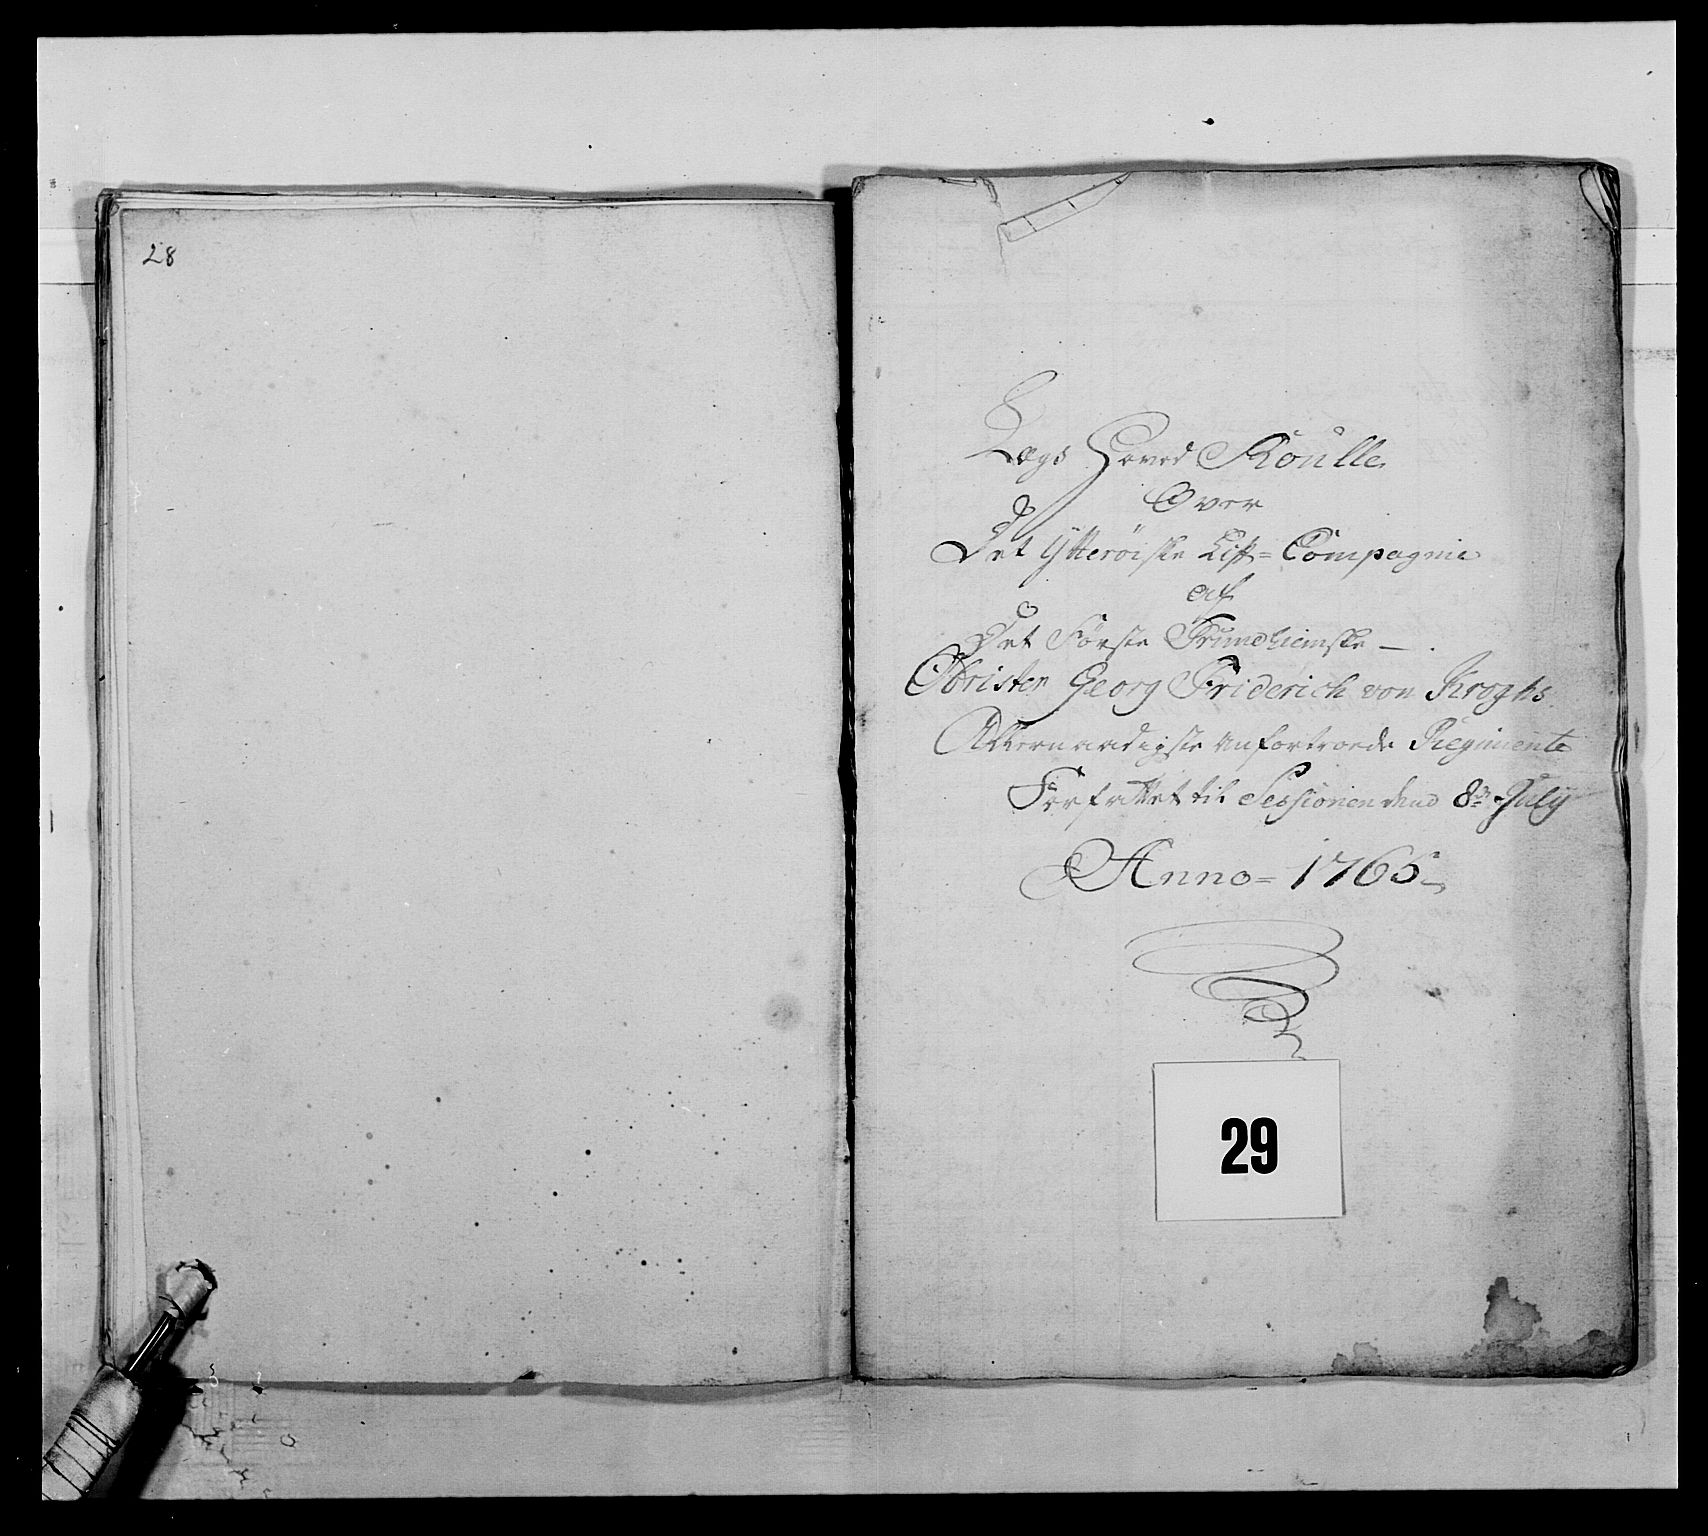 28
Lægs Hoved Roulle
Over
Det Ytterøiske Lif=Compagnie
af
Det Første Trundhiemske
Obrister Georg Friderich von Kroghs
Allernaadigste anfortroede Regimente
Forfattet til Sessionen dend 8de July
Anno= 1765
29